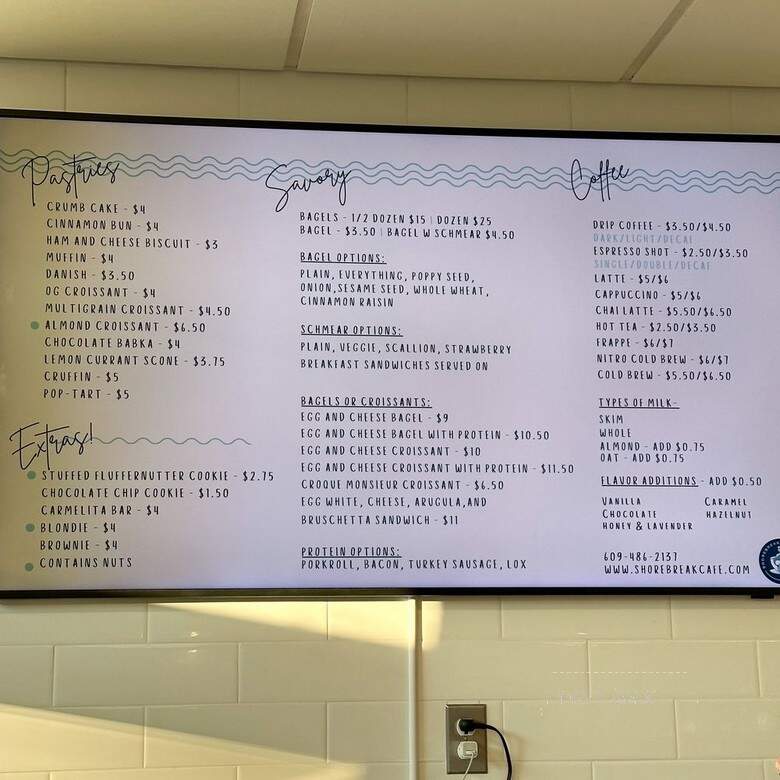 Pastries
CRUMB CAKE - $4
CINNAMON BUN - $4
HAM AND CHEESE BISCUIT - $3
MUFFIN - $4
DANISH - $3.50
OG CROISSANT - $4
MULTIGRAIN CROISSANT - $4.50
ALMOND CROISSANT - $6.50
CHOCOLATE BABKA - $4
LEMON CURRANT SCONE - $3.75
CRUFFIN - $5
POP-TART - $5
Extras!
STUFFED FLUFFERNUTTER COOKIE - $2.75
CHOCOLATE CHIP COOKIE - $1.50
CARMELITA BAR - $4
BLONDIE - $4
BROWNIE - $4
CONTAINS NUTS
Savory
BAGELS - 1/2 DOZEN $15 | DOZEN $25
BAGEL - $3.50 | BAGEL W SCHMEAR $4.50
BAGEL OPTIONS:
PLAIN, EVERYTHING, POPPY SEED,
ONION,SESAME SEED, WHOLE WHEAT,
CINNAMON RAISIN
SCHMEAR OPTIONS:
PLAIN, VEGGIE, SCALLION, STRAWBERRY
BREAKFAST SANDWICHES SERVED ON
BAGELS OR CROISSANTS:
EGG AND CHEESE BAGEL - $9
EGG AND CHEESE BAGEL WITH PROTEIN - $10.50
EGG AND CHEESE CROISSANT - $10
EGG AND CHEESE CROISSANT WITH PROTEIN - $11.50
CROQUE MONSIEUR CROISSANT - $6.50
EGG WHITE, CHEESE, ARUGULA,AND
BRUSCHETTA SANDWICH - $11
PROTEIN OPTIONS:
PORKROLL, BACON, TURKEY SAUSAGE, LOX
Coffee
DRIP COFFEE - $3.50/$4.50
DARK/LIGHT/DECAF
ESPRESSO SHOT - $2.50/$3.50
SINGLE/DOUBLE/DECAF
LATTE - $5/$6
CAPPUCCINO - $5/$6
CHAI LATTE - $5.50/$6.50
HOT TEA - $2.50/$3.50
FRAPPE - $6/$7
NITRO COLD BREW - $6/$7
COLD BREW - $5.50/$6.50
TYPES OF MILK-
SKIM
WHOLE
ALMOND - ADD $0.75
OAT - ADD $0.75
FLAVOR ADDITIONS - ADD $0.50
VANILLA CARAMEL
CHOCOLATE HAZELNUT
HONEY & LAVENDER
609-486-2137
WWW.SHOREBREAKCAFE.COM